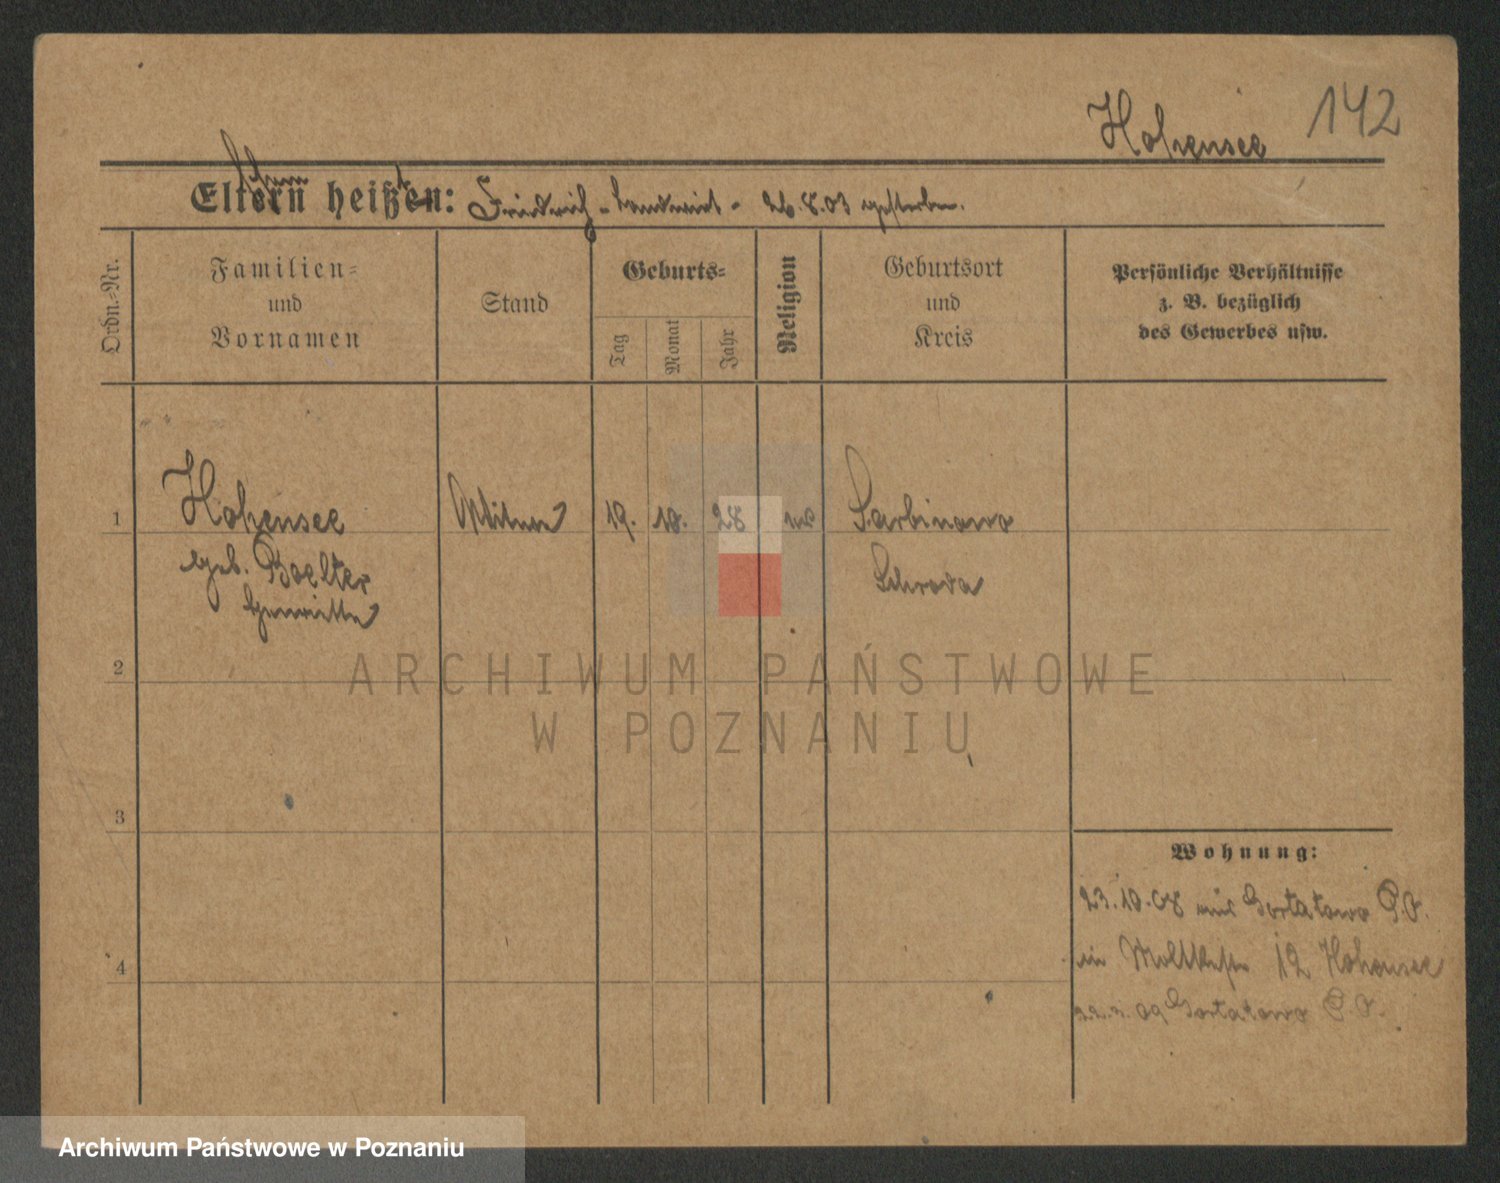 Hohensee 142
Eltern heißen: Friedrich - Landwirt - 26.8.03 gestorben.
Ordn.-Nr.
Familien-
und
Vornamen
Stand
Geburts-
Tag
Monat
Jahr
Religion
Geburtsort
und
Kreis
Persönliche Verhältnisse
z. B. bezüglich
des Gewerbes usw.
1 Hohensee Witwe 19. 10. 28 ev Sarbinowo
geb. Boelter Schroda
Henriette
2
3
4
Wohnung:
23.10.08 aus Gortatowo P.O.
in Moltkestr 12 Hohensee
09 Gortatowo P.O.
ARCHIWUM PAŃSTWOWE
W POZNANIU
Archiwum Państwowe w Poznaniu